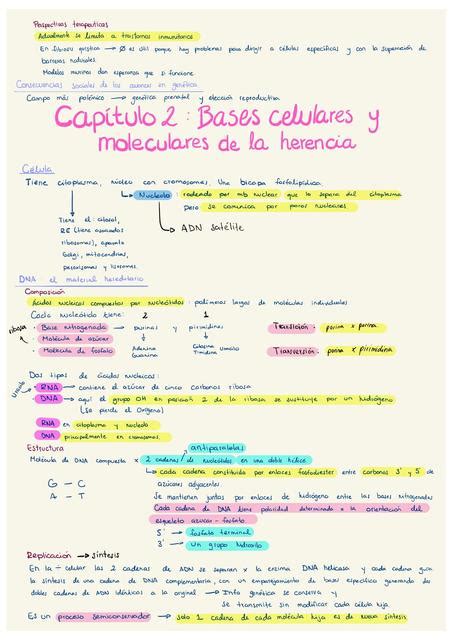 Perspectivas terapeuticas
Actualmente se limita a trastornos inmunitarios
En fibrosis quística → Ø es útil porque hay problemas para dirigir a células específicas y con la superación de
barreras naturales
Modelos murinos dan esperanza que si funcione
Consecuencias sociales de los avances en genética
Campo más polémico → genética prenatal y elección reproductiva
Capítulo 2: Bases celulares y
moleculares de la herencia
Célula
Tiene citoplasma, núcleo con cromosomas. Una bicapa fosfolipídica.
Nucleolo: rodeado por mb nuclear que lo separa del citoplasma
pero se comunica por poros nucleares
Tiene el: citosol,
RE (tiene asociados
ribosomas), aparato
Golgi, mitocondrias,
peroxisomas y lisosomas.
ADN satélite
DNA: el material hereditario
Composición
Ácidos nucleicos compuestos por nucleótidos: polímeros largos de moléculas individuales
Cada nucleótido tiene: 2 1
ribosa
· Base nitrogenada → purinas y pirimidinas
· Molécula de azúcar
· Molécula de fosfato
Adenina
Guanina
Citosina
Timidina Uracilo
Transición: purina x purina
Transversión: purina x pirimidina
Dos tipos de ácidos nucleicos:
Uracilo
· RNA → contiene el azúcar de cinco carbonos ribosa
· DNA → aquí el grupo OH en posición 2 de la ribosa se sustituye por un hidrógeno
(se pierde el Oxígeno)
RNA en citoplasma y nucleolo
DNA principalmente en cromosomas.
Estructura
antiparalelas
Molécula de DNA compuesta x 2 cadenas de nucleótidos en una doble hélice
cada cadena constituida por enlaces fosfodiester entre carbonos 3' y 5' de
azúcares adyacentes
G – C
A – T
Se mantienen juntas por enlaces de hidrógeno entre las bases nitrogenadas
Cada cadena de DNA tiene polaridad determinada x la orientación del
esqueleto azúcar-fosfato
5' → fosfato terminal
3' → Un grupo hidroxilo
Replicación → síntesis
En la ÷ celular las 2 cadenas de ADN se separan x la enzima DNA helicasa y cada cadena guía
la síntesis de una cadena de DNA complementaria, con un emparejamiento de bases específico generando dos
dobles cadenas de ADN idénticas a la original → Info genética se conserva y
se transmite sin modificar cada célula hija.
Es un proceso semiconservador → solo 1 cadena de cada molécula hija es de nueva síntesis